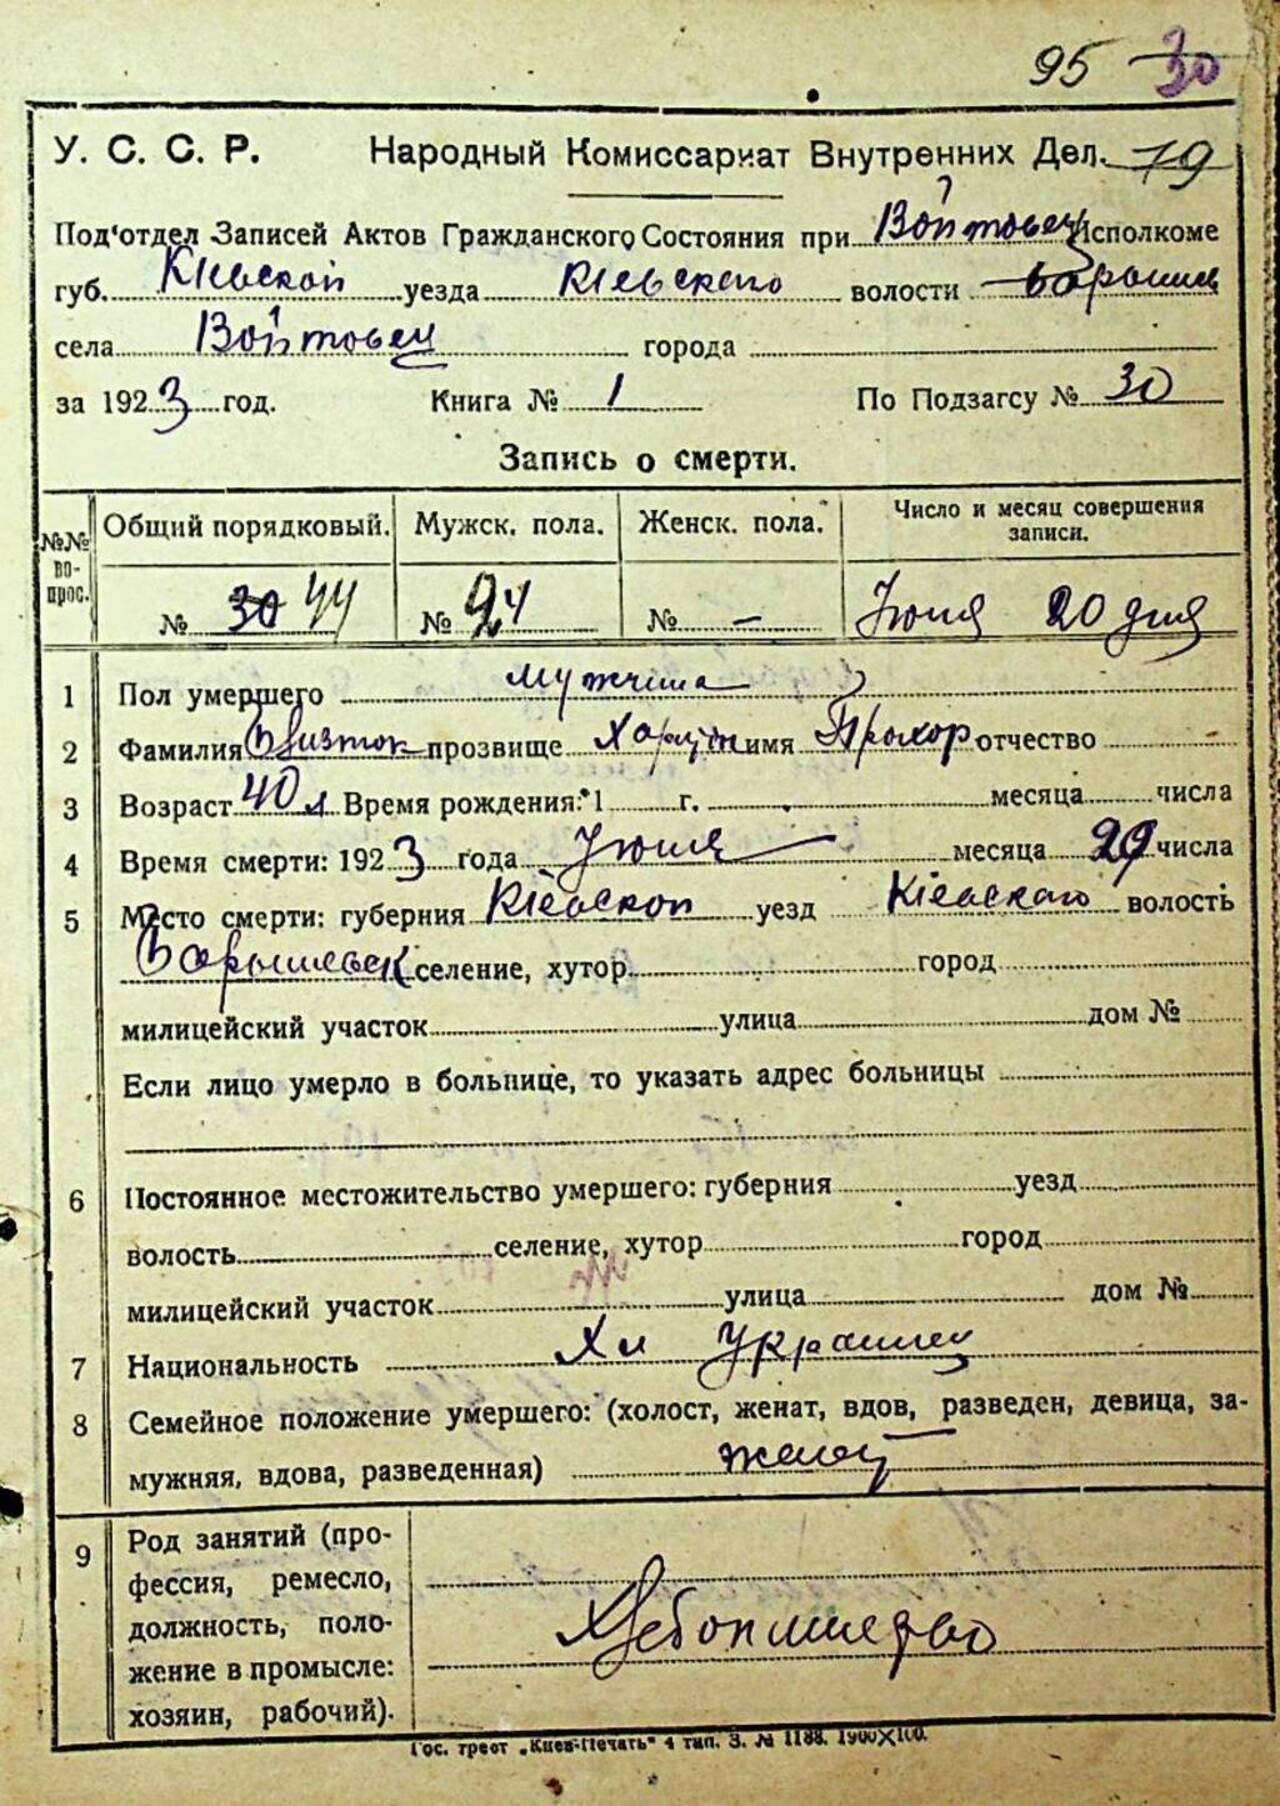 95 30
У. С. С. Р. Народный Комиссариат Внутренних Дел. 79
Под'отдел Записей Актов Гражданского Состояния при Войтовец Исполкоме
губ. Кіевской уезда Кіевского волости Барошив
села Войтовец города
за 1923 год. Книга № 1 По Подзагсу № 30
Запись о смерти.
№№ во- прос. Общий порядковый. Мужск. пола. Женск. пола. Число и месяц совершения записи.
№ 30 44 № 24 № - Июня 20 дня
1 Пол умершего мужчина
2 Фамилия прозвище имя Прохор отчество
3 Возраст 40 л Время рождения: 1 г. месяца числа
4 Время смерти: 1923 года Июня месяца числа
5 Место смерти: губерния Кіевской уезд Кіевскаго волость
Барышевск селение, хутор город
милицейский участок улица дом №
Если лицо умерло в больнице, то указать адрес больницы
6 Постоянное местожительство умершего: губерния уезд
волость селение, хутор город
милицейский участок улица дом №
7 Национальность Украинец
8 Семейное положение умершего: (холост, женат, вдов, разведен, девица, за-
мужняя, вдова, разведенная) женат
9 Род занятий (про-
фессия, ремесло,
должность, поло-
жение в промысле:
хозяин, рабочий).
Хлебопашество
Гос. трест „Киев-Печать" 4 тип. З. № 1188. 1900×100.